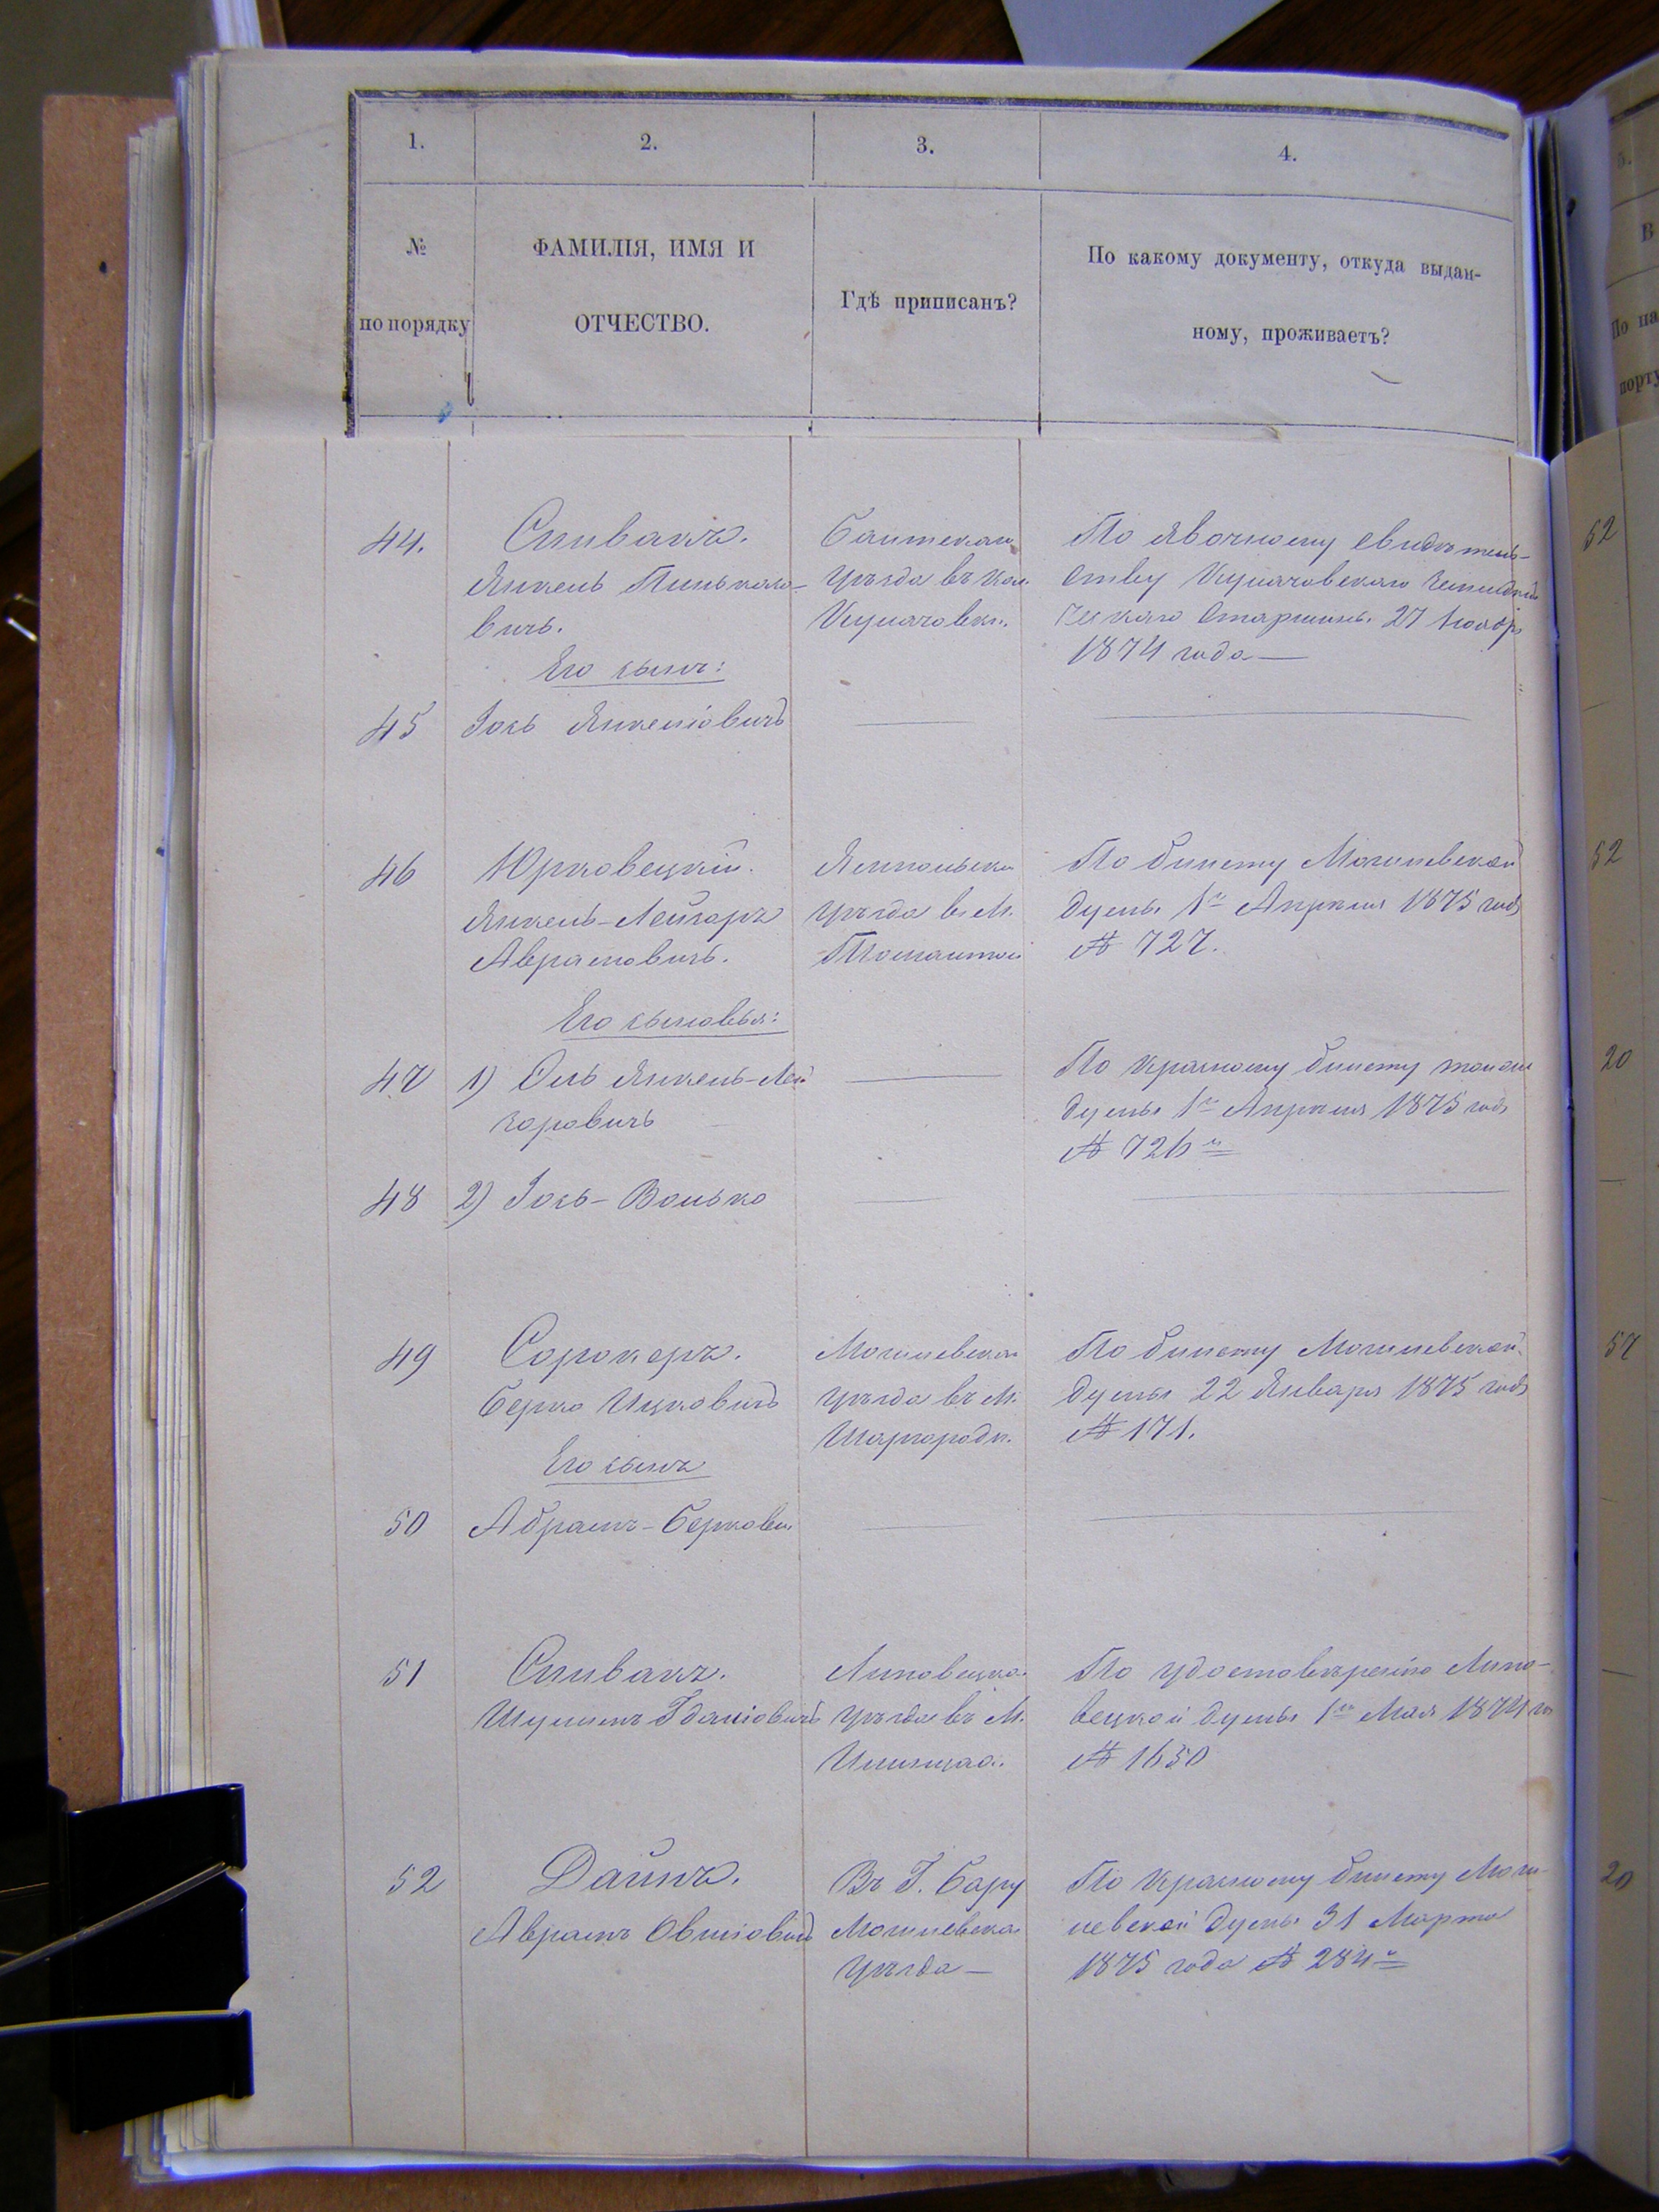 1. 2. 3. 4.
№ по порядку
ФАМИЛІЯ, ИМЯ И
ОТЧЕСТВО.
Гдѣ приписанъ?
По какому документу, откуда выдан-
ному, проживаетъ?
44. Спивакъ.
Янкель Пинькасо-
вичъ.
Его сынъ:
Балтскаго
уѣзда въ кол.
По явочному свидѣтель-
ству старшины 27 Ноября
1874 года —
45 Іось Янкеліовичъ
46 Юрковецкій.
Янкель-Лейзоръ
Аврамовичъ.
Его сыновья:
Ямпольска
уѣзда в. М.
Томашполѣ
По билету Могилевской
думы 1го Апрѣля 1875 года
№ 727.
47 1) Янкель-Лей
зоровичъ
По красному билету тойже
думы 1го Апрѣля 1875 года
№ 726й
48 2) Іось-Волько
49 Сорокеръ.
Берко Ицковичъ
Его сынъ
Могилевска
уѣзда въ М.
Шаргородѣ.
По билету Могилевской
думы 22 Января 1875 года
№ 171.
50 Абрамъ-Беркови
51 Спивакъ.
Шулимъ
Липовецка
уѣзда въ М.
Илинцах.
По удостовѣренію Липо-
вецкой думы 1го Мая 1874 го
№ 1650
52 Дайнъ.
Аврамъ Овшіовичъ
Въ Г. Бару
Могилевска
уѣзда —
По красному билету Моги-
левской думы 31 Марта
1875 года № 284й
5.
В
По па
порту
52
52
20
57
20